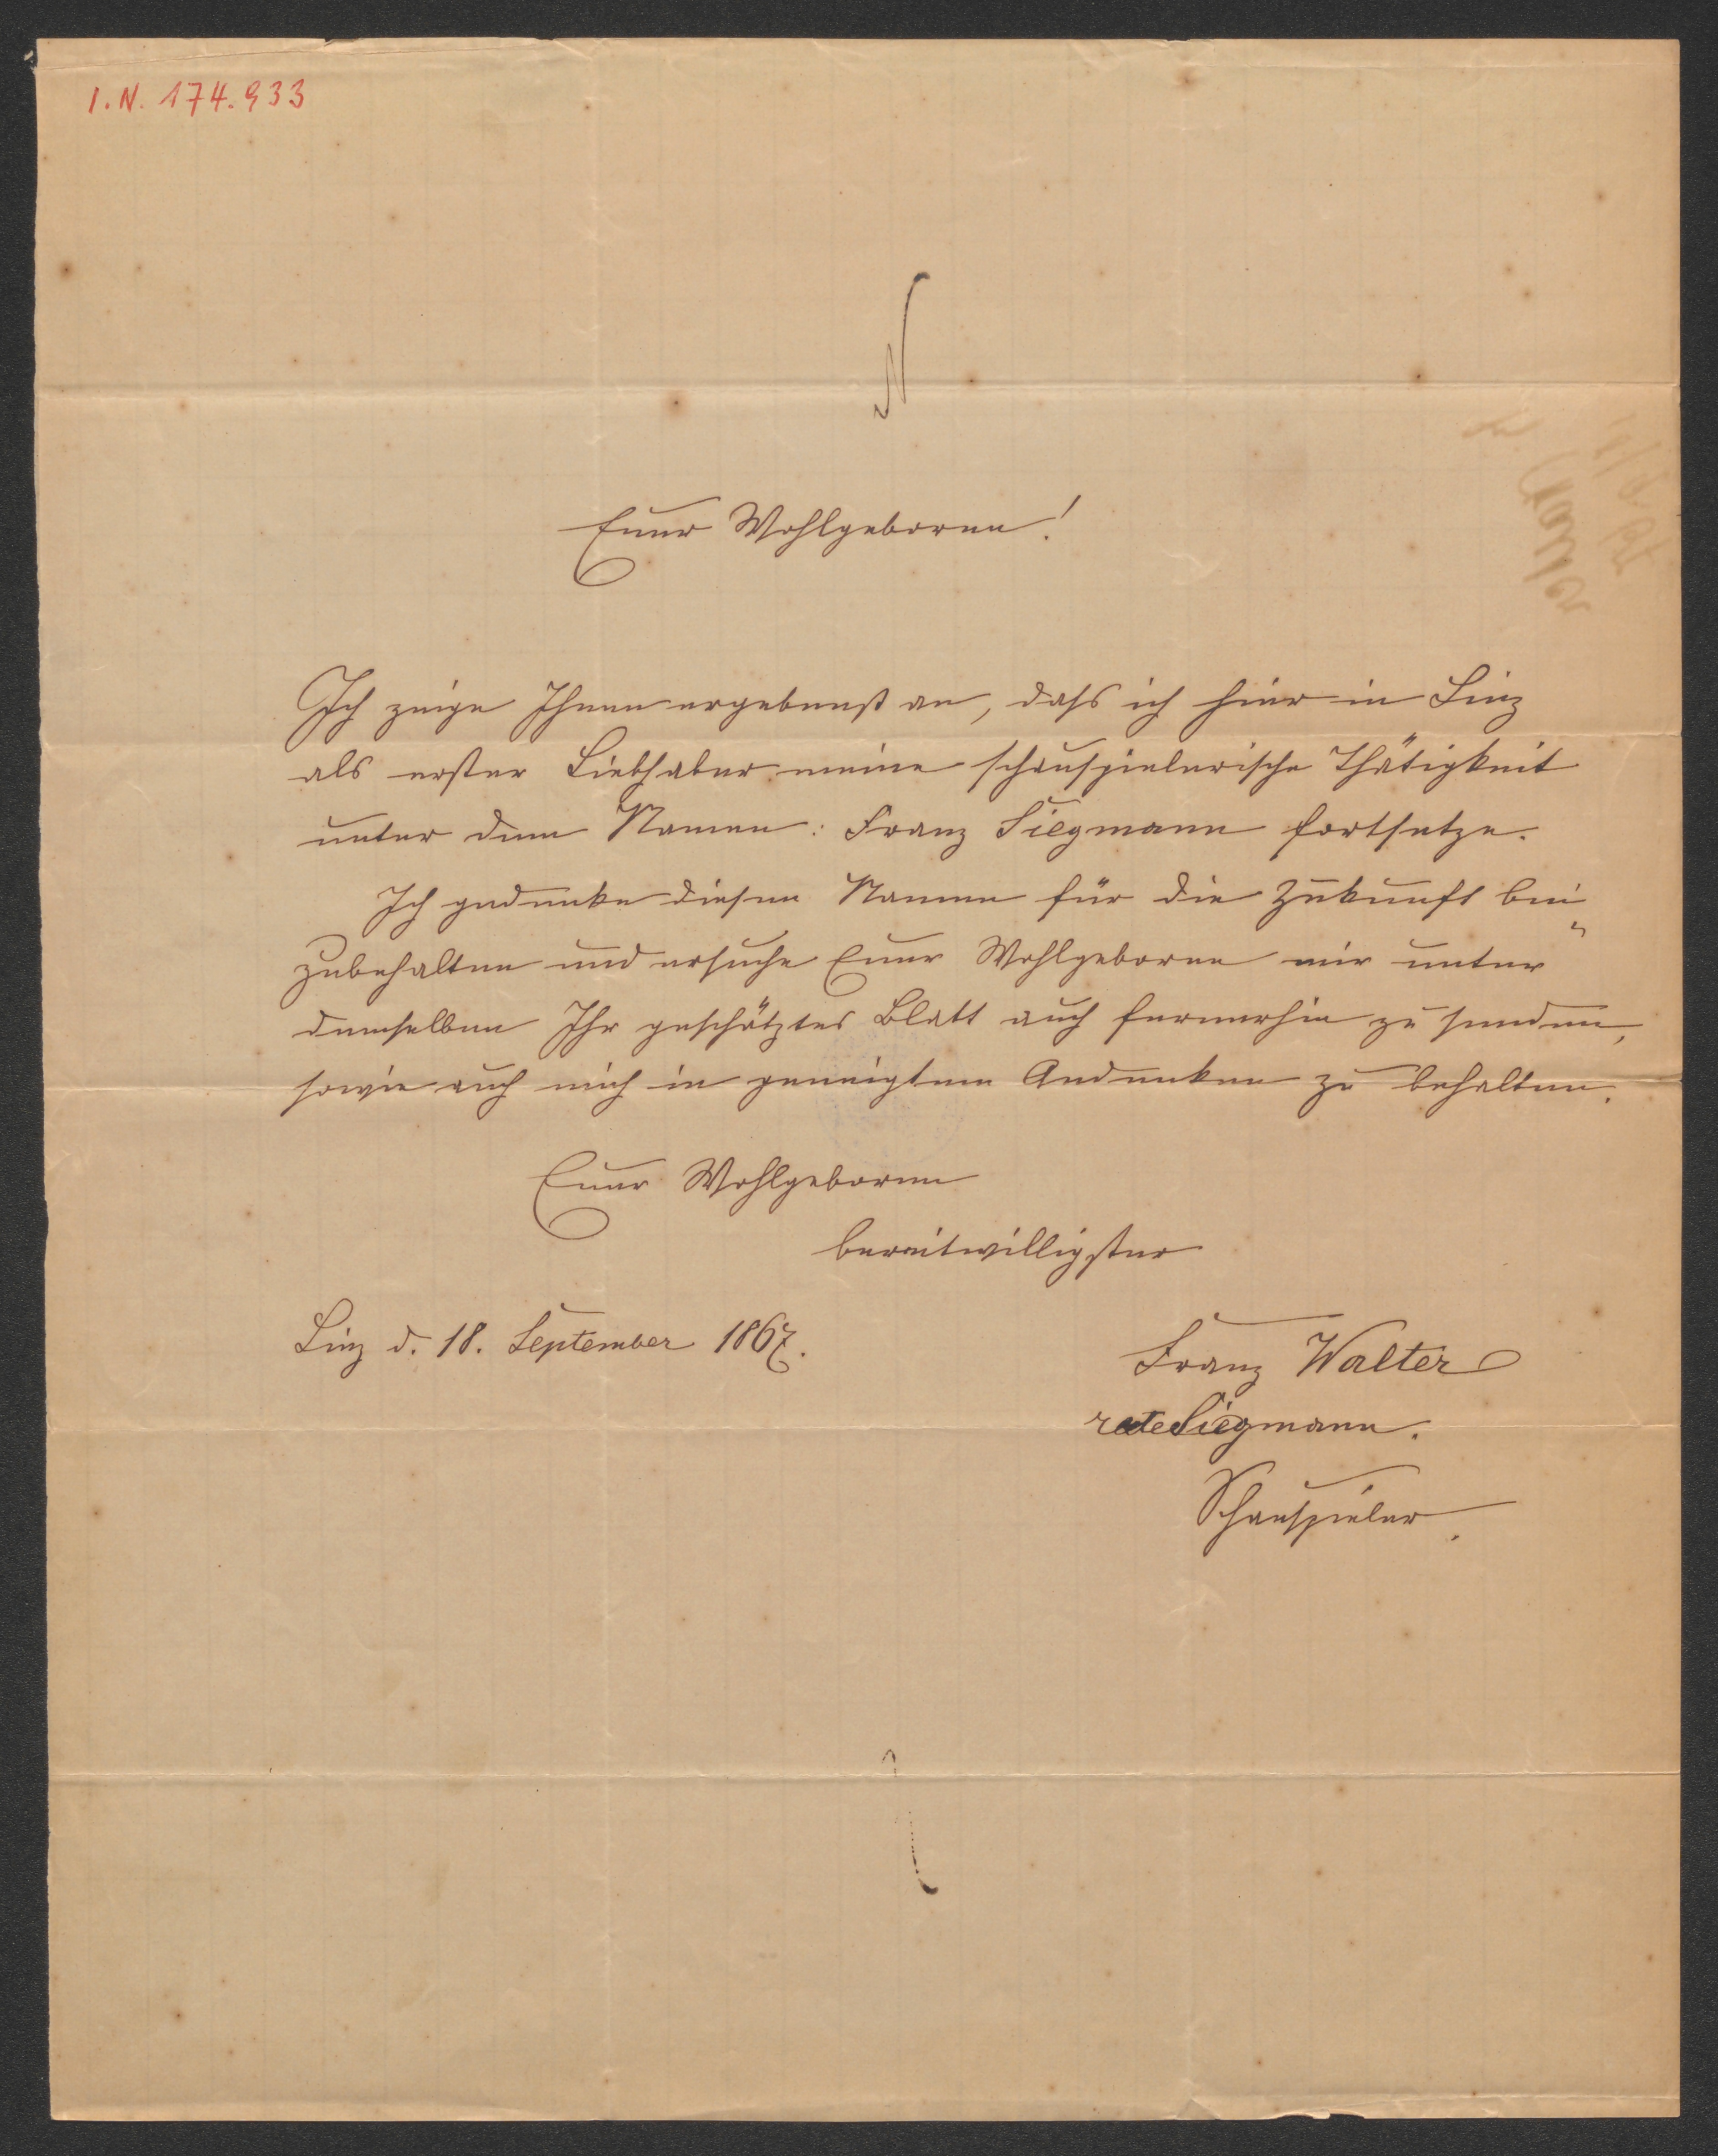 I.N. 174.933
Euer Wohlgeboren!
Ich zeige Ihnen ergebenst an, dass ich hier in Linz
als erster Liebhaber meine schauspielerische Thätigkeit
unter dem Namen: Franz Siegmann fortsetze.
Ich gedenke diesen Namen für die Zukunft bei
zubehalten und ersuche Euer Wohlgeboren mir unter
demselben Ihr geschätztes Blatt auch fernerhin zu senden,
sowie auch mich in geneigtem Andenken zu behalten.
Euer Wohlgeboren
bereitwilligster
Linz d. 18. September 1867.
Franz Walter
recte Siegmann.
Schauspieler.